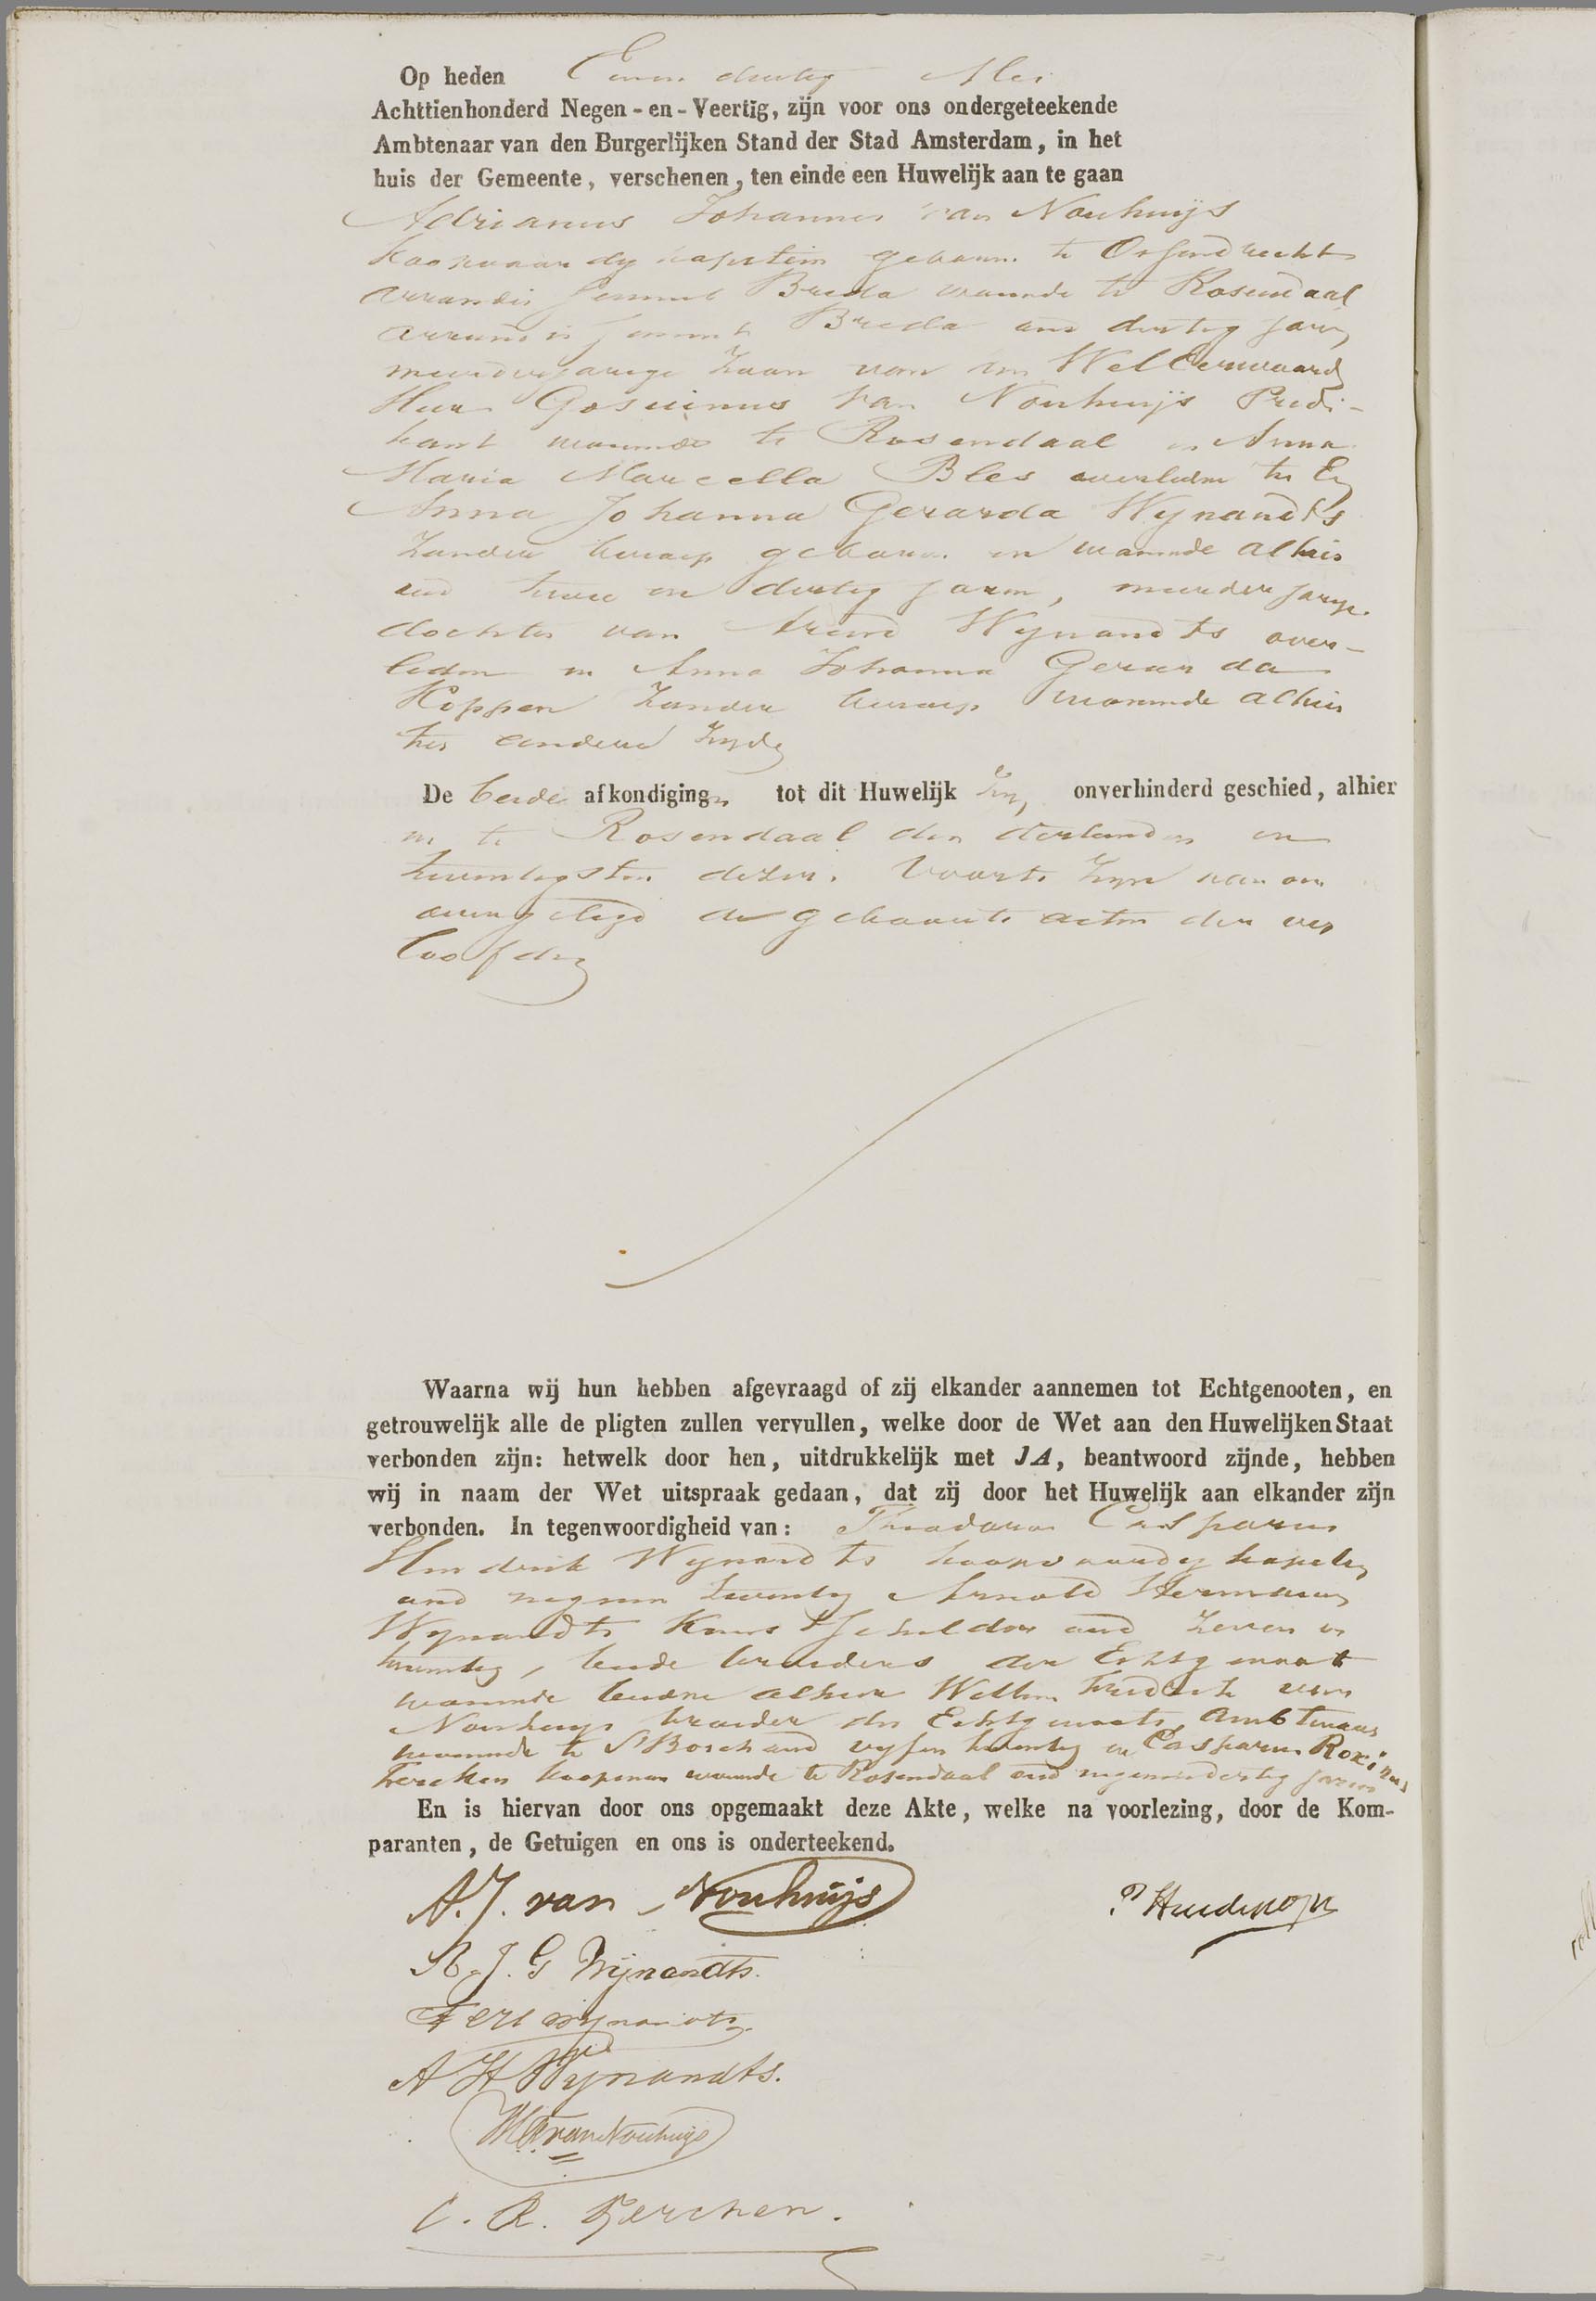 Op heden Een en dertig Mei
Achttienhonderd Negen-en-Veertig, zijn voor ons ondergeteekende
Ambtenaar van den Burgerlijken Stand der Stad Amsterdam, in het
huis der Gemeente, verschenen, ten einde een Huwelijk aan te gaan
Adrianus Johannes van Nouhuijs
Koopvaardy kapitein geboren te Ossendrecht
arrondissement Breda wonende te Rosendaal
arrondissement Breda oud dertig jaren
meerderjarige Zoon van den WelEerwaard
Heer Gosuinus van Nouhuijs Predi-
kant wonende te Rosendaal en Anna
Maria Marcella Bles overleden ter Eenre
Anna Johanna Gerarda Wynandts
Zonder beroep geboren en wonende alhier
oud twee en dertig jaren, meerderjarige
dochter van Arend Wynandts over-
leden en Anna Johanna Gerarda
Koppen Zonder beroep wonende alhier
ter andere Zyde
De beide afkondigingen tot dit Huwelijk Zyn onverhinderd geschied, alhier
en te Rosendaal den dertienden en
twintigsten dezer. Voorts Zyn aan ons
overgelegd de geboorte acten der ver
loofden
Waarna wij hun hebben afgevraagd of zij elkander aannemen tot Echtgenooten, en
getrouwelijk alle de pligten zullen vervullen, welke door de Wet aan den Huwelijken Staat
verbonden zijn: hetwelk door hen, uitdrukkelijk met JA, beantwoord zijnde, hebben
wij in naam der Wet uitspraak gedaan, dat zij door het Huwelijk aan elkander zijn
verbonden. In tegenwoordigheid van: Theodorus Casparus
Hendrik Wynandts koopvaardy kapitein
oud negenen twintig Arnold Hermanus
Wynandts Kunst Schilder oud Zeven en
twintig, beide broeders der Echtgenoot
wonende beiden alhier Willem Frederik van
Nouhuys broeder des Echtgenoots, Ambtenaar
wonende te S'Bosch oud vyfen twintig en Casparus Roxinus
Kercken koopman wonende te Rosendaal oud negenendertig jaren
En is hiervan door ons opgemaakt deze Akte, welke na voorlezing, door de Kom-
paranten, de Getuigen en ons is onderteekend.
A. J. van Nouhuijs
A. J. G Wijnandts.
Wynandts
A H Wynandts.
van Nouhuijs
C. R. Kerchen.